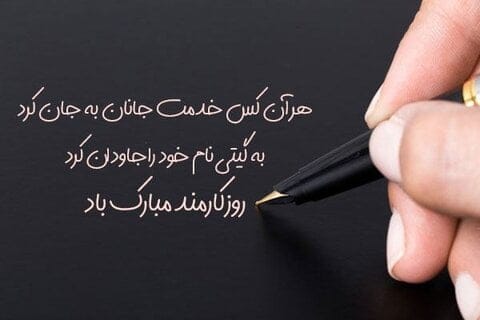 هر آن کس خدمت جانان به جان کرد
به گیتی نام خود را جاودان کرد
روز کارمند مبارک باد